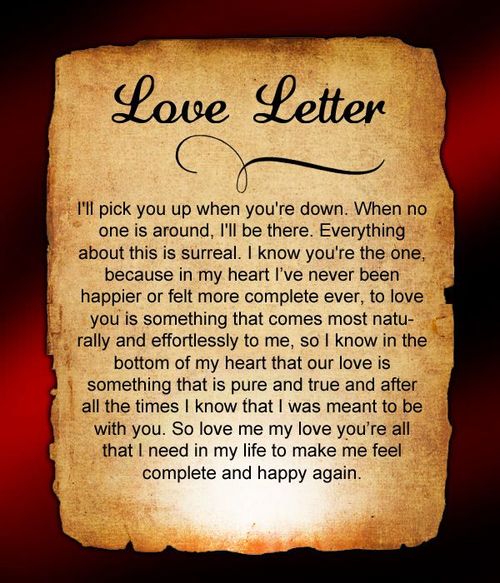 Love Letter
I'll pick you up when you're down. When no
one is around, I'll be there. Everything
about this is surreal. I know you're the one,
because in my heart I've never been
happier or felt more complete ever, to love
you is something that comes most natu-
rally and effortlessly to me, so I know in the
bottom of my heart that our love is
something that is pure and true and after
all the times I know that I was meant to be
with you. So love me my love you're all
that I need in my life to make me feel
complete and happy again.